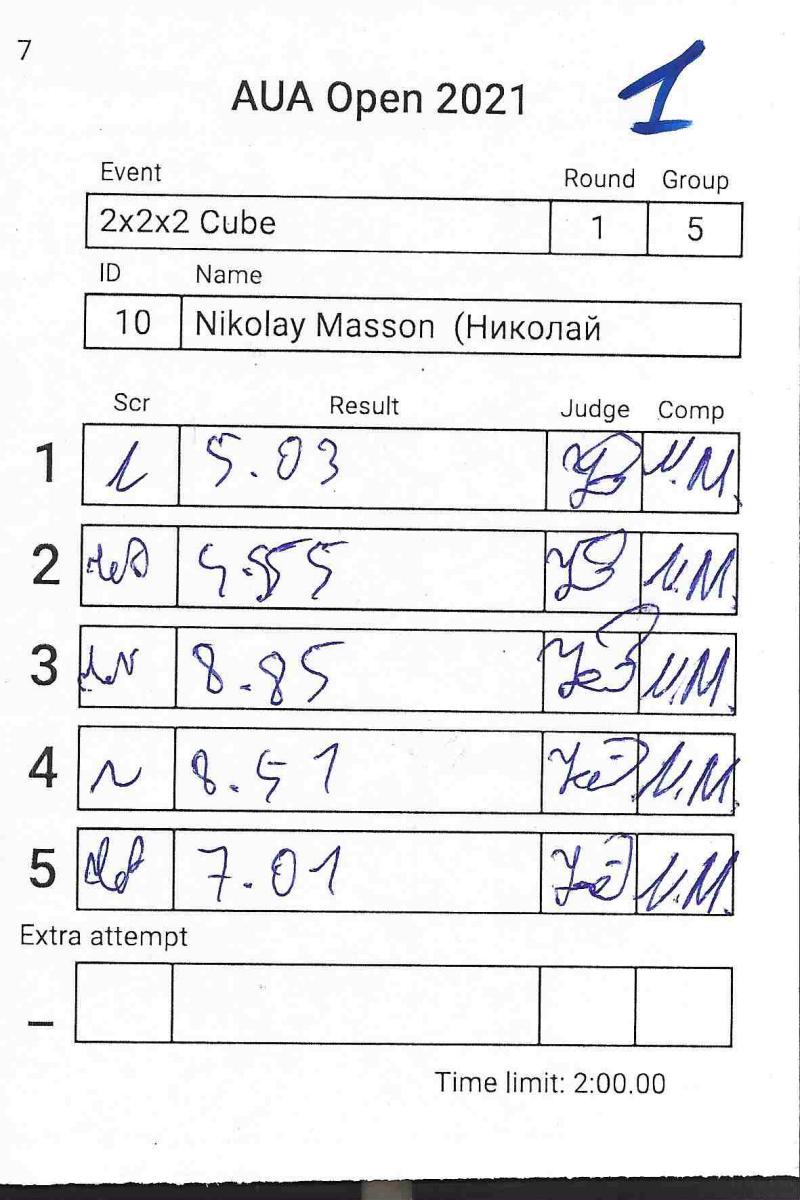 7
AUA Open 2021
1
Event Round Group
2x2x2 Cube 1 5
ID Name
10 Nikolay Masson (Николай
Scr Result Judge Comp
1 5.03 И.М.
2 И.М.
3 8.85 И.М.
4 8.51 И.М.
5 7.01 И.М.
Extra attempt
–
Time limit: 2:00.00